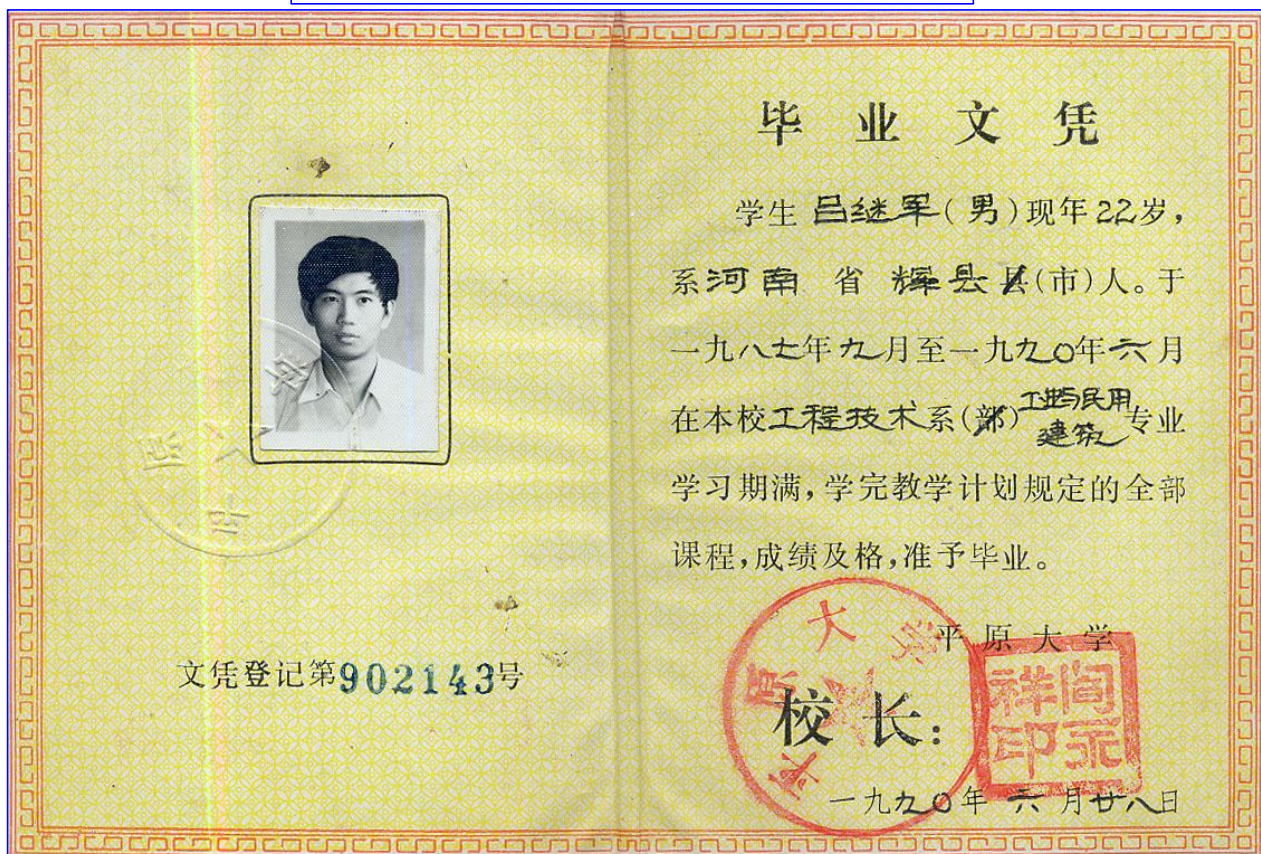 文凭登记第902143号
毕业文凭
学生 吕继军(男)现年22岁,
系河南省 辉县县(市)人。于
一九八七年九月至一九九〇年六月
在本校工程技术系(部)工业与民用建筑专业
学习期满,学完教学计划规定的全部
课程,成绩及格,准予毕业。
平原大学
平原大学
校长:
阎永祥印
一九九〇年 六月廿八日